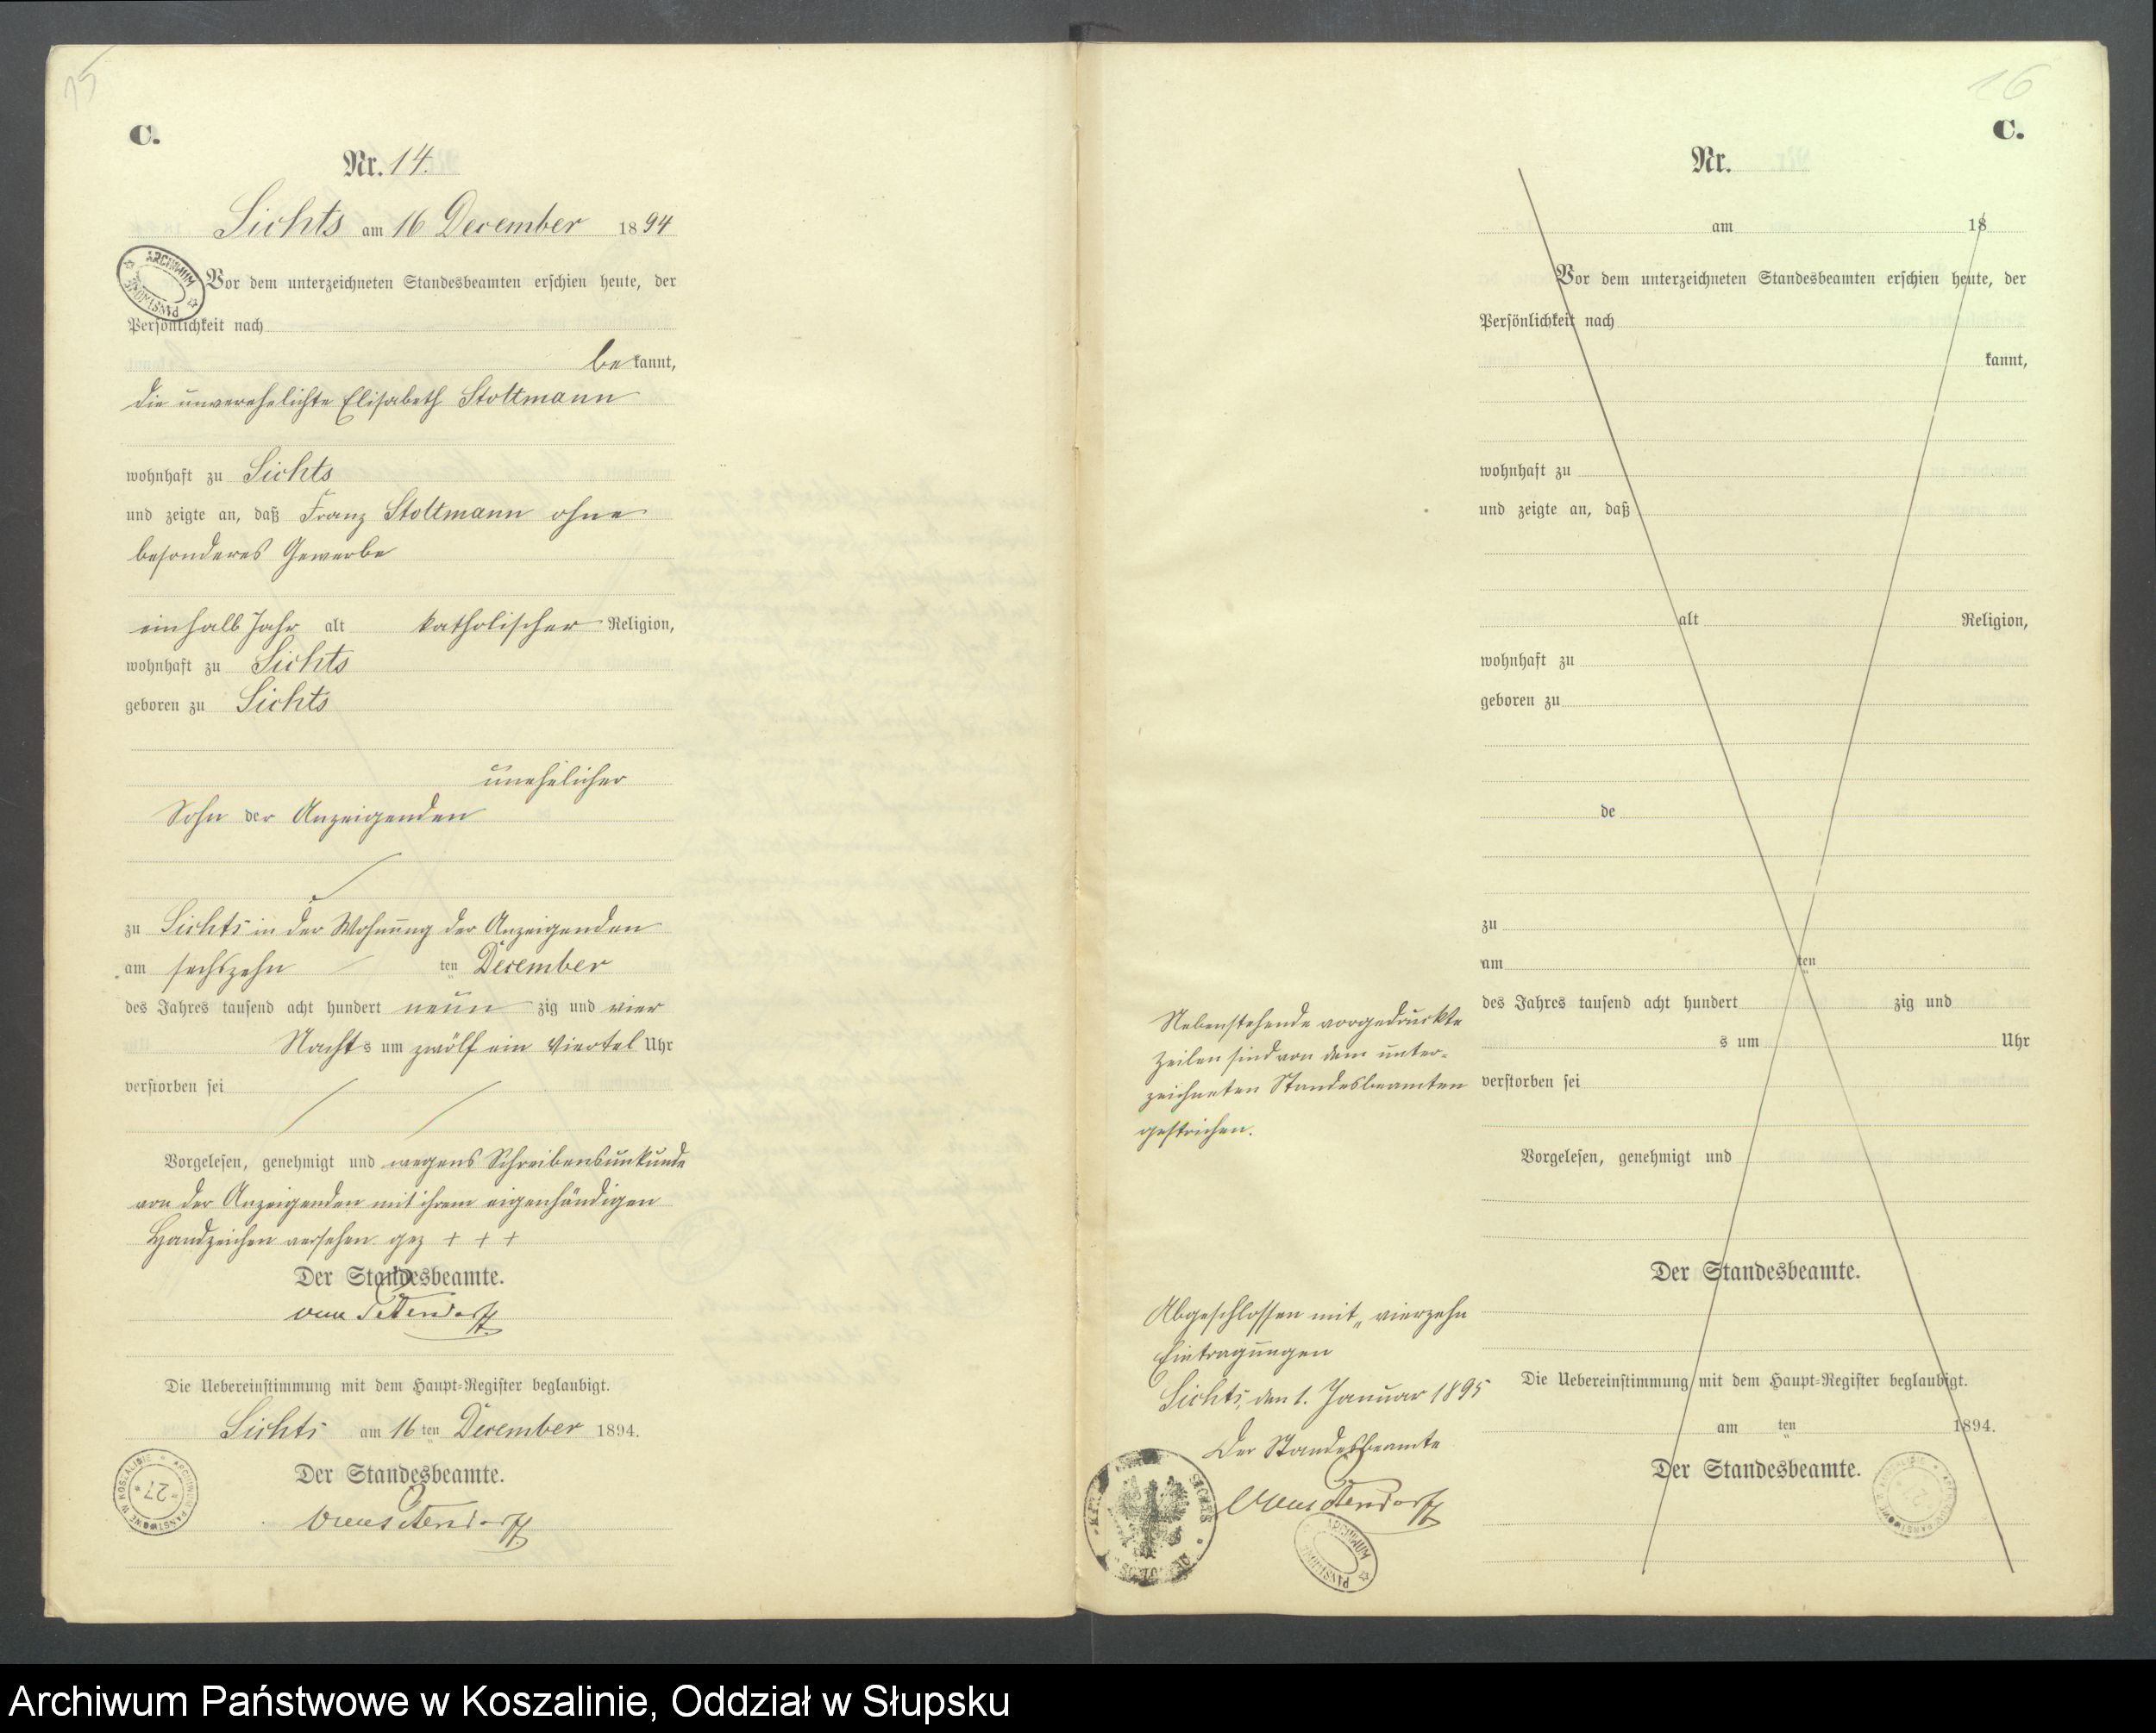 15
C.
Nr. 14.
Sichts am 16 December 1894
ARCHIWUM PAŃSTWOWE
Vor dem unterzeichneten Standesbeamten erschien heute, der
Persönlichkeit nach
be kannt,
die unverehelichte Elisabeth Stoltmann
wohnhaft zu Sichts
und zeigte an, daß Franz Stoltmann ohne
besonderes Gewerbe
einhalb Jahr alt katholischer Religion,
wohnhaft zu Sichts
geboren zu Sichts
unehelicher
Sohn der Anzeigenden
zu Sichts in der Wohnung der Anzeigenden
am sechszehn ten December
des Jahres tausend acht hundert neun zig und vier
Nachts um zwölf ein Viertel Uhr
verstorben sei
Vorgelesen, genehmigt und wegens Schreibensunkunde
von der Anzeigenden mit ihrem eigenhändigen
Handzeichen versehen gez + + +
Der Standesbeamte.
Die Uebereinstimmung mit dem Haupt-Register beglaubigt.
Sichts am 16 ten December 1894.
Der Standesbeamte.
ARCHIWUM PAŃSTWOWE W KOSZALINIE * 27 *
16
C.
Nr.
am 18
Vor dem unterzeichneten Standesbeamten erschien heute, der
Persönlichkeit nach
kannt,
wohnhaft zu
und zeigte an, daß
alt Religion,
wohnhaft zu
geboren zu
de
zu
am ten
des Jahres tausend acht hundert zig und
s um Uhr
verstorben sei
Vorgelesen, genehmigt und
Der Standesbeamte.
Die Uebereinstimmung mit dem Haupt-Register beglaubigt.
am ten 1894.
Der Standesbeamte.
Nebenstehende vorgedruckte
Zeilen sind von dem unter-
zeichneten Standesbeamten
gestrichen.
Abgeschlossen mit „ vierzehn
Eintragungen
Sichts, den 1. Januar 1895
Der Standesbeamte
ARCHIWUM PAŃSTWOWE
Archiwum Państwowe w Koszalinie, Oddział w Słupsku